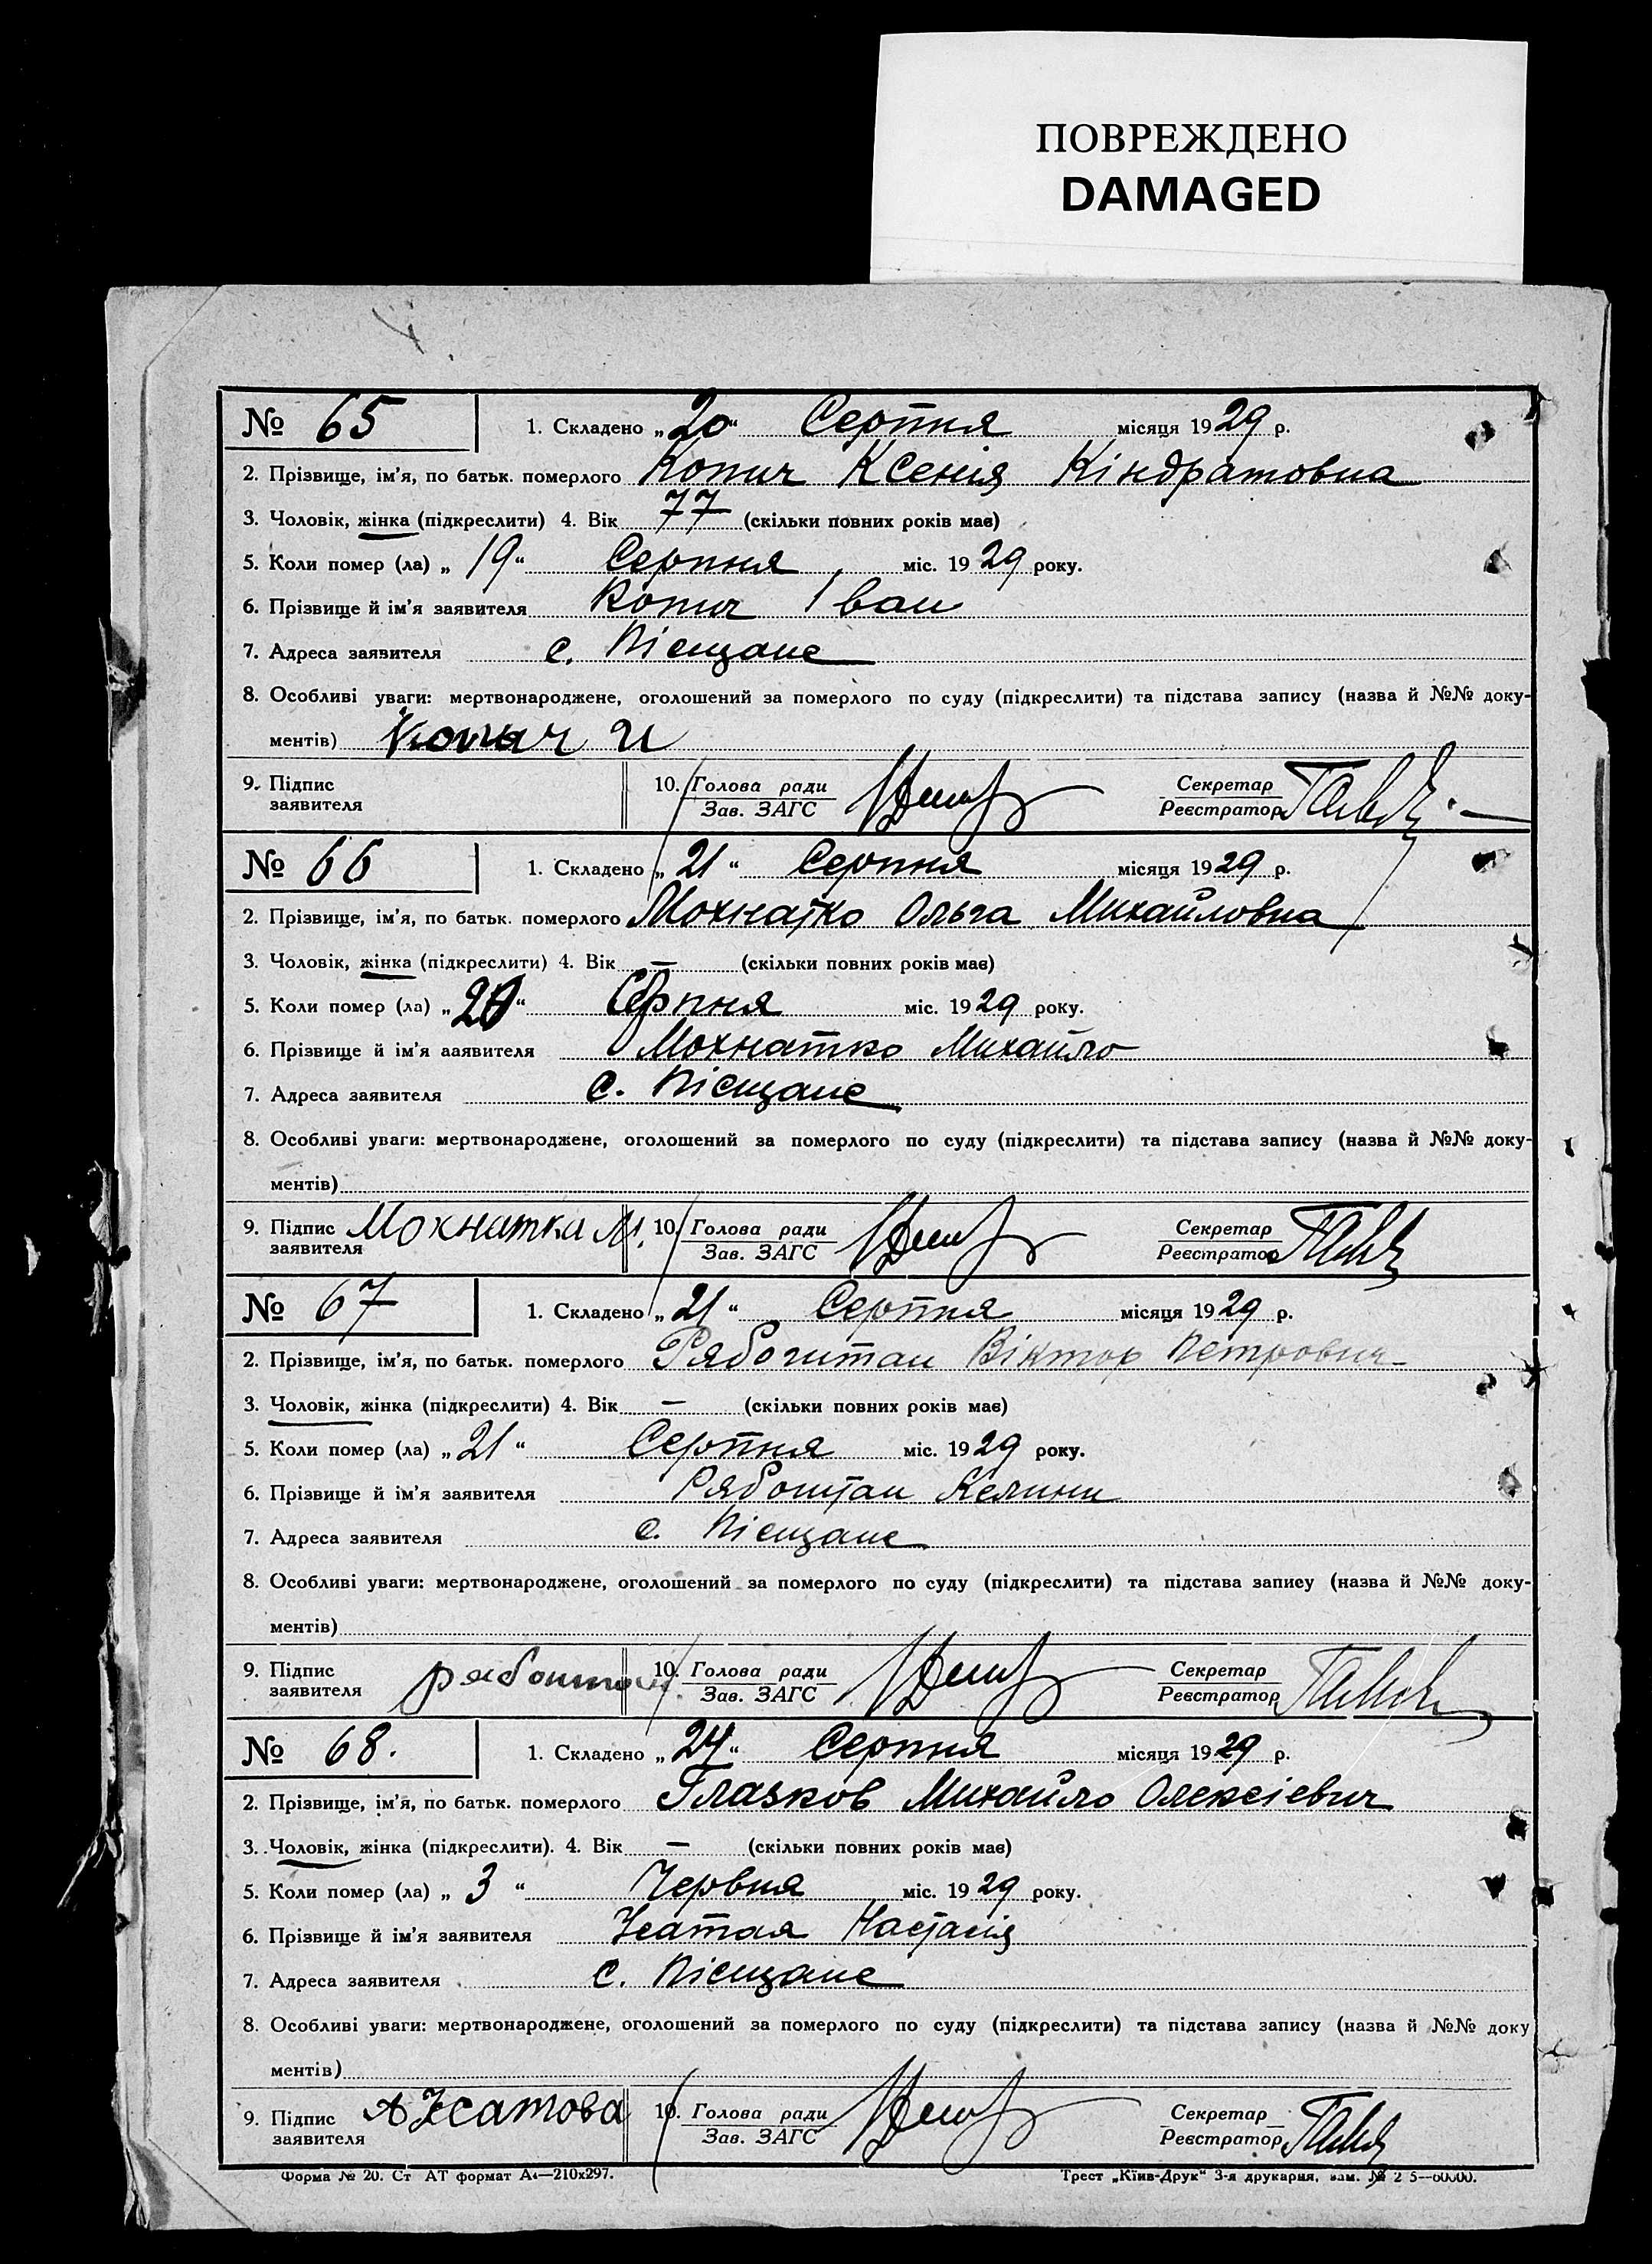 ПОВРЕЖДЕНО
DAMAGED
№ 65 1. Складено „20“ Серпня місяця 1929 р.
2. Прізвище, ім'я, по батьк. померлого Копич Ксенія Кіндратовна
3. Чоловік, жінка (підкреслити) 4. Вік 77 (скільки повних років має)
5. Коли помер (ла) „19“ Серпня міс. 1929 року.
6. Прізвище й ім'я заявителя Копич Іван
7. Адреса заявителя с. Піещане
8. Особливі уваги: мертвонароджене, оголошений за померлого по суду (підкреслити) та підстава запису (назва й №№ доку-
ментів) И
9. Підпис заявителя 10. Голова ради Зав. ЗАГС Секретар Реєстратор
№ 66 1. Складено „21“ Серпня місяця 1929 р.
2. Прізвище, ім'я, по батьк. померлого Мохнатко Ольга Михайловна
3. Чоловік, жінка (підкреслити) 4. Вік — (скільки повних років має)
5. Коли помер (ла) „20“ Серпня міс. 1929 року.
6. Прізвище й ім'я ааявителя Мохнатко Михайло
7. Адреса заявителя с. Піещане
8. Особливі уваги: мертвонароджене, оголошений за померлого по суду (підкреслити) та підстава запису (назва й №№ доку-
ментів)
9. Підпис заявителя Мохнатка М. 10. Голова ради Зав. ЗАГС Секретар Реєстратор
№ 67 1. Складено „21“ Серпня місяця 1929 р.
2. Прізвище, ім'я, по батьк. померлого Віктор Петрович
3. Чоловік, жінка (підкреслити) 4. Вік — (скільки повних років має)
5. Коли помер (ла) „21“ Серпня міс. 1929 року.
6. Прізвище й ім'я заявителя Рябоштан
7. Адреса заявителя с. Піещане
8. Особливі уваги: мертвонароджене, оголошений за померлого по суду (підкреслити) та підстава запису (назва й №№ доку-
ментів)
9. Підпис заявителя 10. Голова ради Зав. ЗАГС Секретар Реєстратор
№ 68. 1. Складено „24“ Серпня місяця 1929 р.
2. Прізвище, ім'я, по батьк. померлого Глазков Михайло Олексієвич
3. Чоловік, жінка (підкреслити). 4. Вік — (скільки повних років має)
5. Коли помер (ла) „3“ Червня міс. 1929 року.
6. Прізвище й ім'я заявителя Усатая Настасія
7. Адреса заявителя с. Піещане
8. Особливі уваги: мертвонароджене, оголошений за померлого по суду (підкреслити) та підстава запису (назва й №№ доку
ментів)
9. Підпис заявителя А Усатова 10. Голова ради Зав. ЗАГС Секретар Реєстратор
Форма № 20. Ст АТ формат А4—210х297. Трест „Київ-Друк“ 3-я друкарня, зам. №